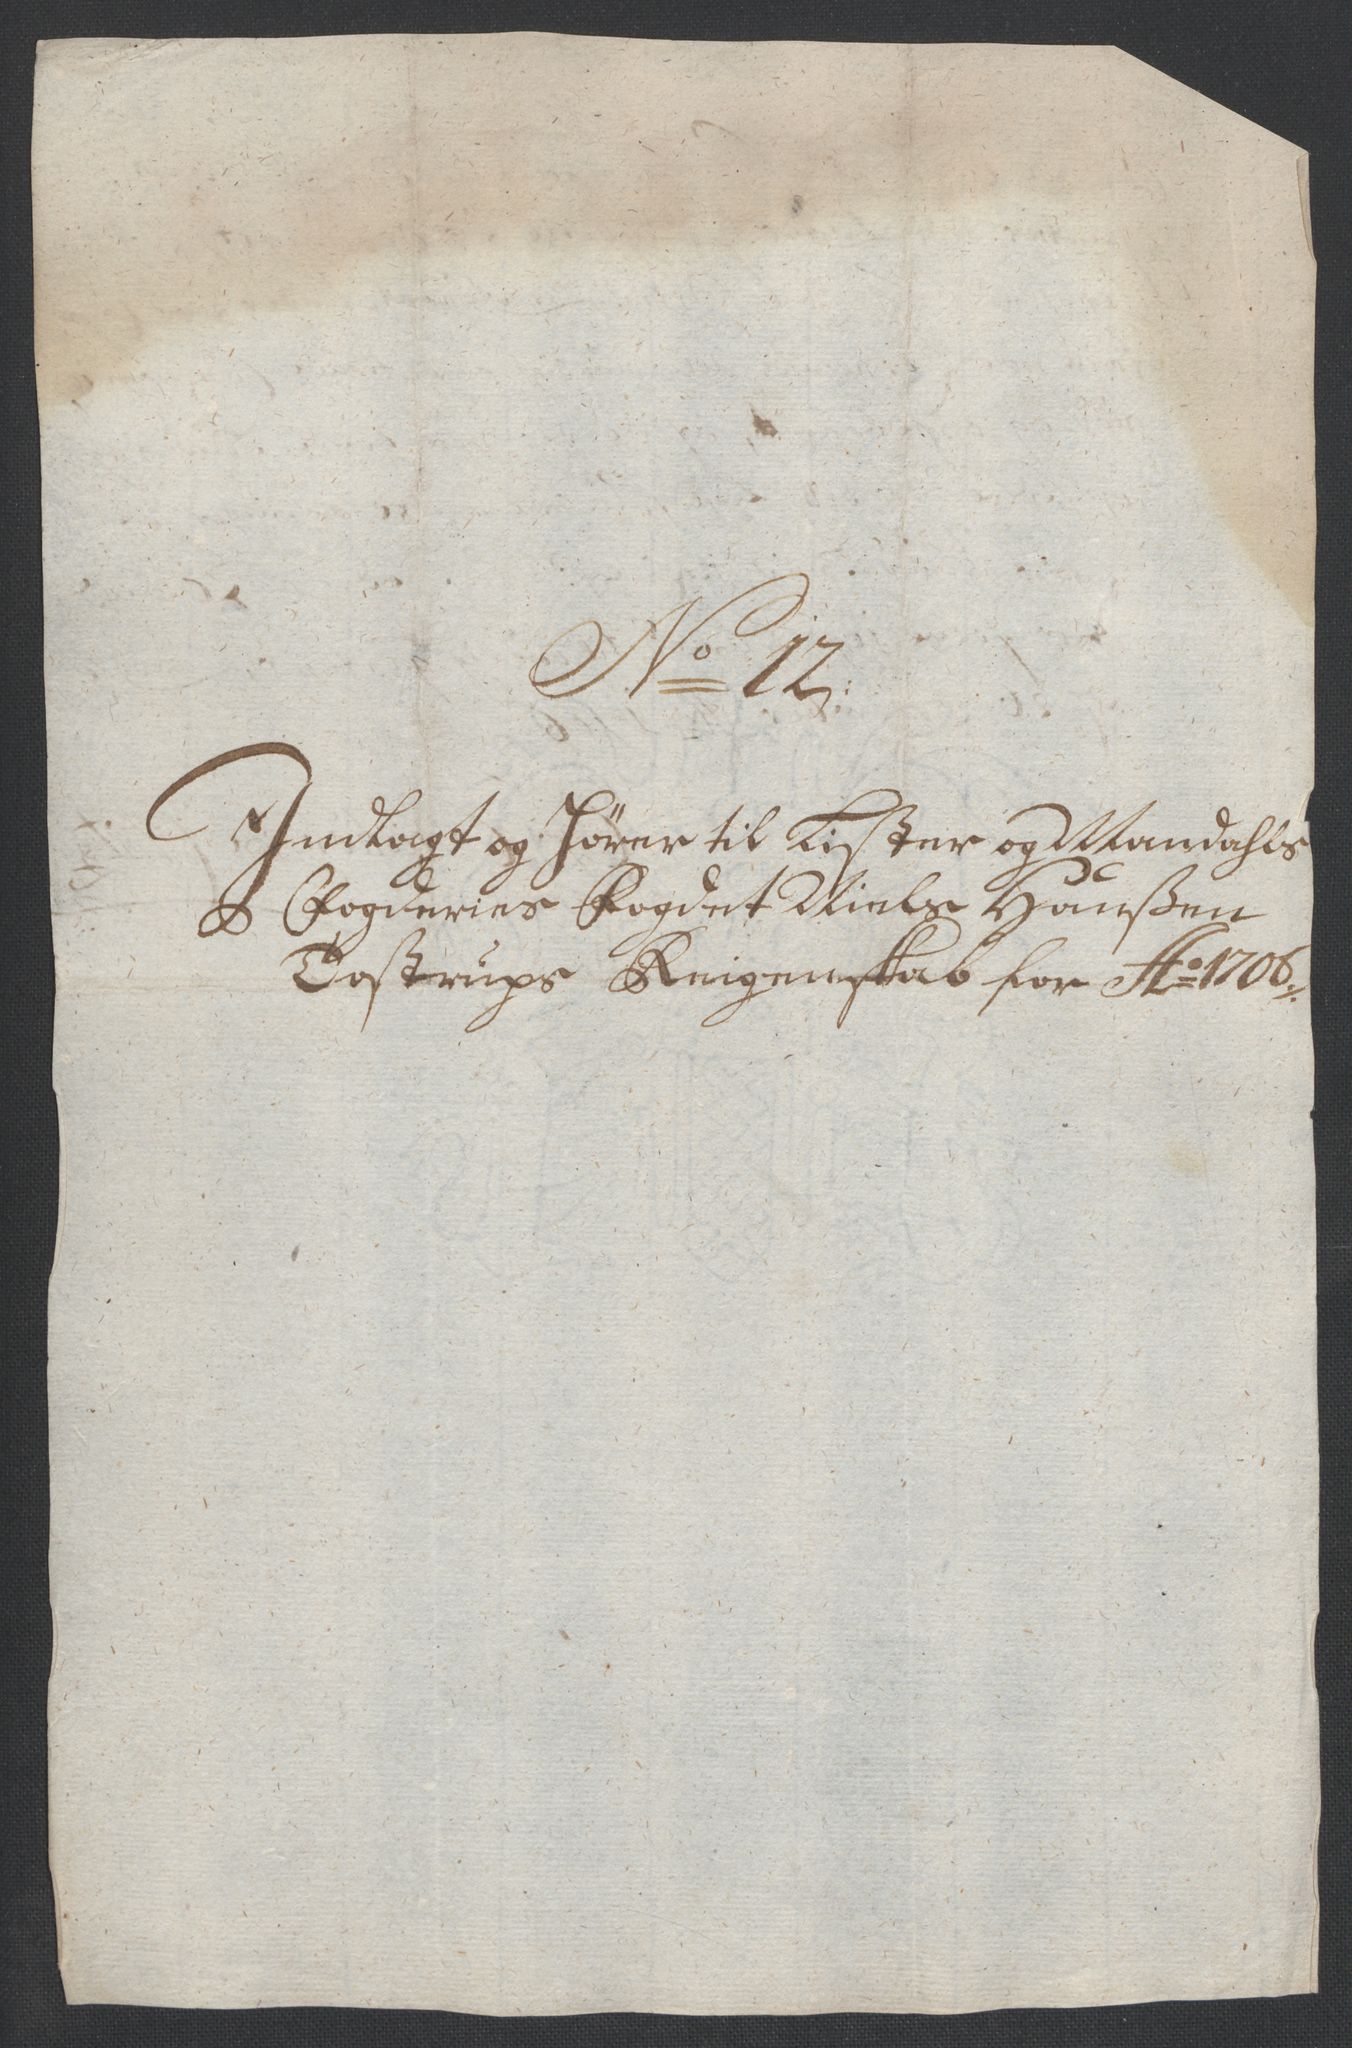 No 12.
Indlagt og hører til Lister og Mandahls
Fogderies Fogdet Niels Hanßen
Tostrups Reigenskab for Ao 1706.